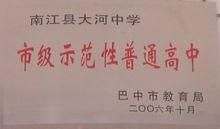 南江县大河中学
市级示范性普通高中
巴中市教育局
二〇〇六年十月